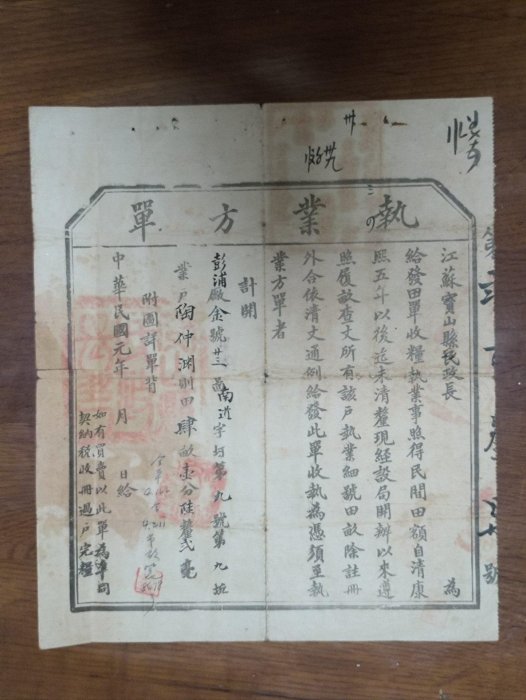 執業方單
江蘇寶山縣民政長 為
給發田單收糧執業事照得民間田額自清康
熙五年以後迄未清釐現經設局開辦以來遵
照履畝查丈所有該戶執業細號田畝除註冊
外合依清丈通例給發此單收執為憑須至執
業方單者
計開
彭浦廠金號廿三圖南近字圩第九號第九坵
業戶陶仲淵則田肆畝壹分陸釐弍毫
附圖詳單背
中華民國元年 月 日給
如有買賣以此單為準同
契納稅收冊過戶完糧